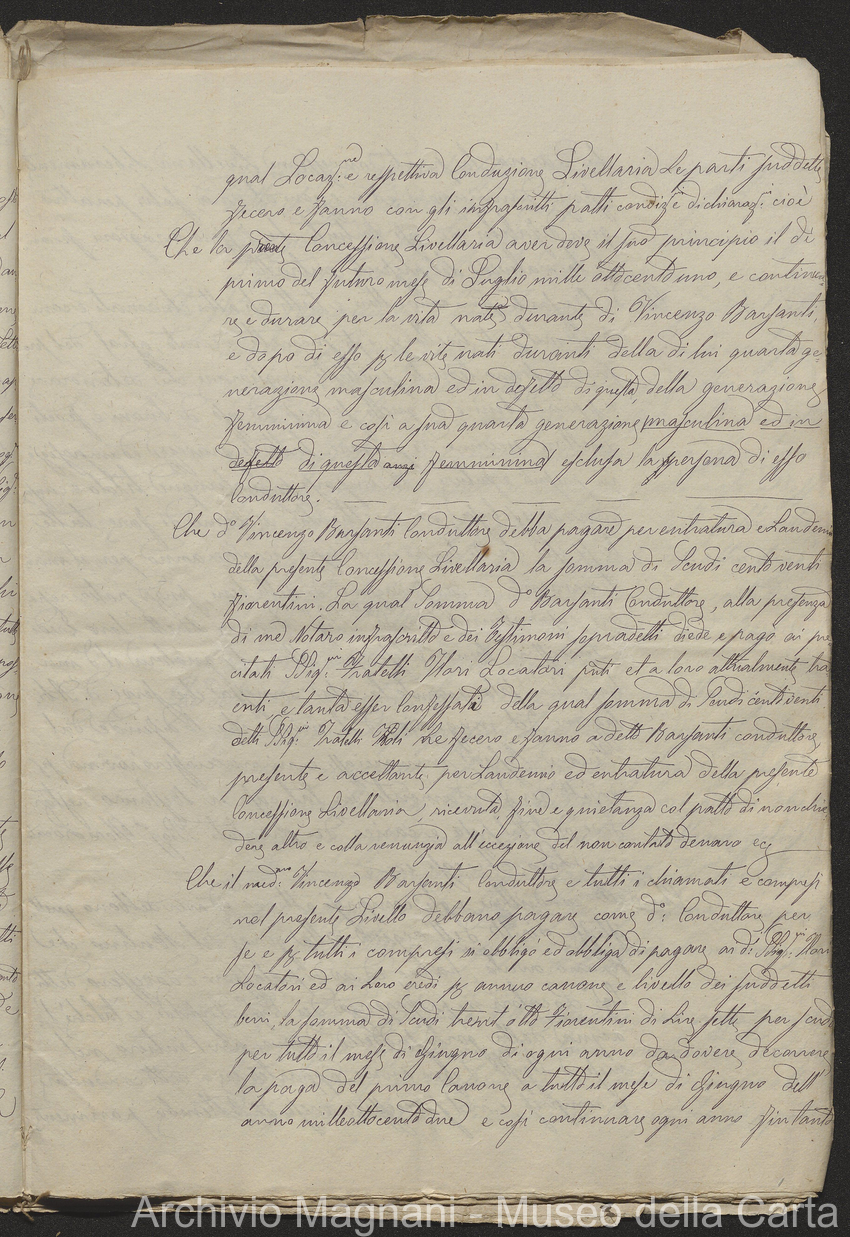 qual Locaz.ne e respettiva Conduzione Livellaria le parti suddette
fecero e fanno con gli infrascritti patti condiz.i e dichiaraz.i cioè
Che la presente Concessione Livellaria aver deve il suo principio il dì
primo del futuro mese di Luglio mille ottocento uno, e continua-
re e durare per la vita nat.e durante di Vincenzo Barsanti,
e dopo di esso p le vite nati duranti della di lui quarta ge-
nerazione masculina ed in defetto di questa, della generazione
femminina e così a sua quarta generazione masculina ed in
defetto di questa anzi femminina esclusa la persona di esso
Conduttore.
Che d.o Vincenzo Barsanti Conduttore debba pagare per entratura e Laudemio
della presente Concessione Livellaria la somma di Scudi cento venti
fiorentini. La qual Somma d.o Barsanti Conduttore, alla presenza
di me Notaro infrascritto e dei Testimoni sopradetti diede e pagò ai pre
citati SSig.ri Fratelli Nori Locatori p̃nti et a loro attualmente tra
enti, e tanta esser Confessati della qual somma di Scudi cento venti
detti SSig.ri Fratelli Nori ne fecero e fanno a detto Barsanti conduttore
presente e accettante per Laudemio ed entratura della presente
Concessione Livellaria, ricevuta, fine e quietanza col patto di non chie
dere altro e colla renunzia all'eccezione del non contato denaro ec
Che il med.mo Vincenzo Barsanti Conduttore e tutti i chiamati e compresi
nel presente Livello debbano pagare come d.o Conduttore per
se e p tutti i compresi si obbligò ed obbliga di pagare ai d.i SSig.ri Nori
Locatori ed ai Loro eredi p annuo canone e livello dei suddetti
beni, la somma di Scudi trent'otto Fiorentini di Lire sette per scudo
per tutto il mese di Giugno di ogni anno da dovere decorrere
la paga del primo Canone a tutto il mese di Giugno dell'
anno milleottocento due e così continuare ogni anno fin tanto
Archivio Magnani - Museo della Carta